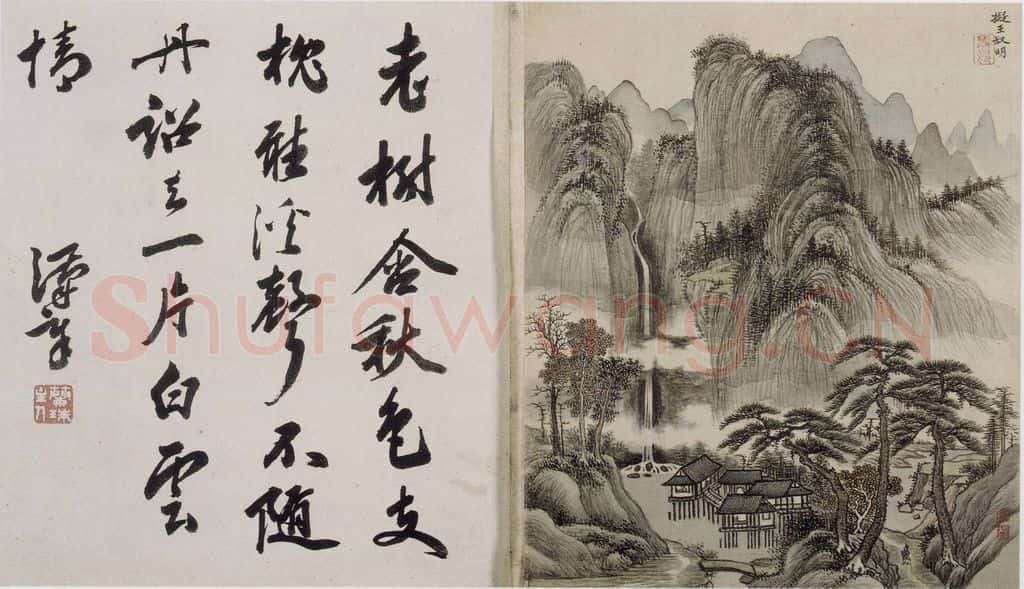 擬王叔明
老樹含秋色支
枕聽溪聲不隨
丹詔去一片白雲
情
Shufawang.CN